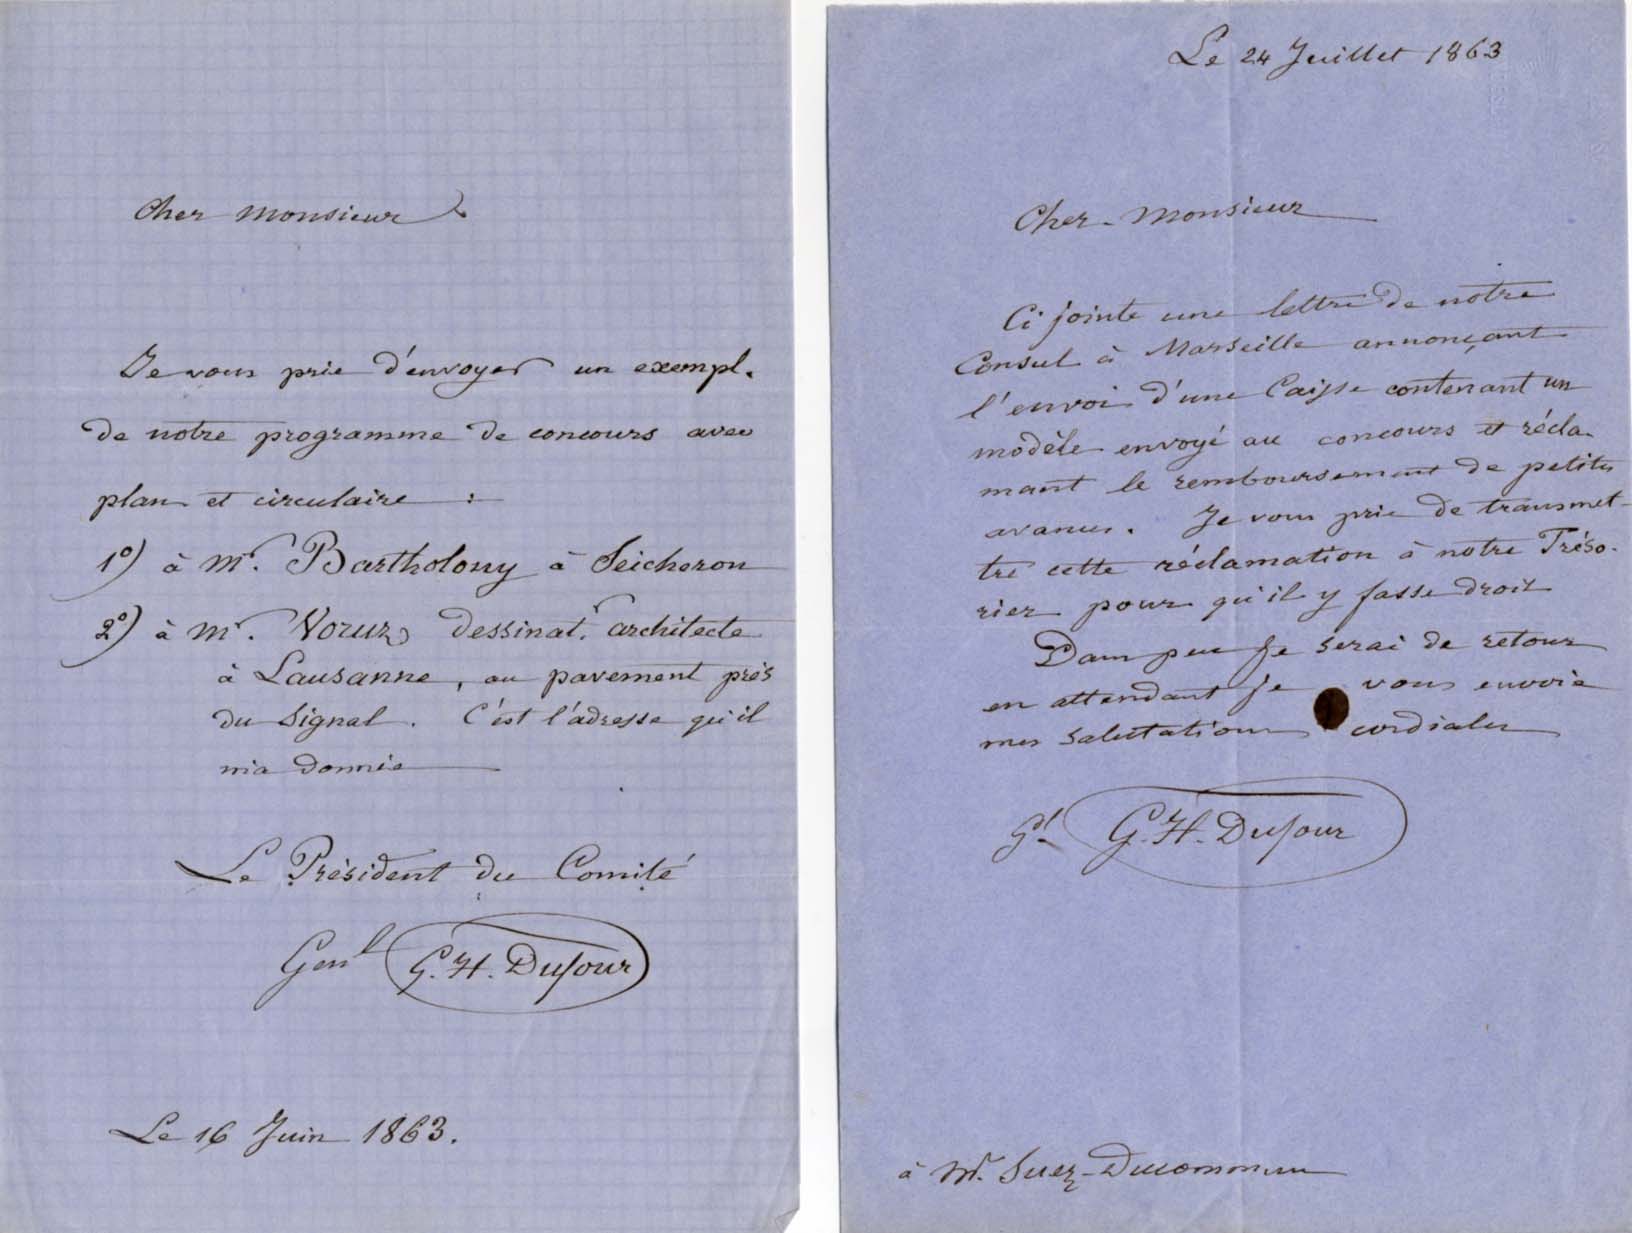 Cher Monsieur
Je vous prie d'envoyer un exempl.
de notre programme de concours avec
plan et circulaire :
1º) à Mr. Bartholony à Seicheron
2º) à Mr. Voruz dessinatr. architecte
à Lausanne, au pavement près
du Signal. C'est l'adresse qu'il
m'a donnée
Le Président du Comité
Genl G. H. Dufour
Le 16 Juin 1863.
Le 24 Juillet 1863
Cher Monsieur
Ci jointe une lettre de notre
Consul à Marseille annonçant
l'envoi d'une Caisse contenant un
modèle envoyé au concours et récla-
mant le remboursement de petites
avances. Je vous prie de transmet-
tre cette réclamation à notre Tréso-
rier pour qu'il y fasse droit
Dans peu je serai de retour
en attendant je vous envoie
mes salutations cordiales
Gl G. H. Dufour
à Mr. Suez-Ducommun